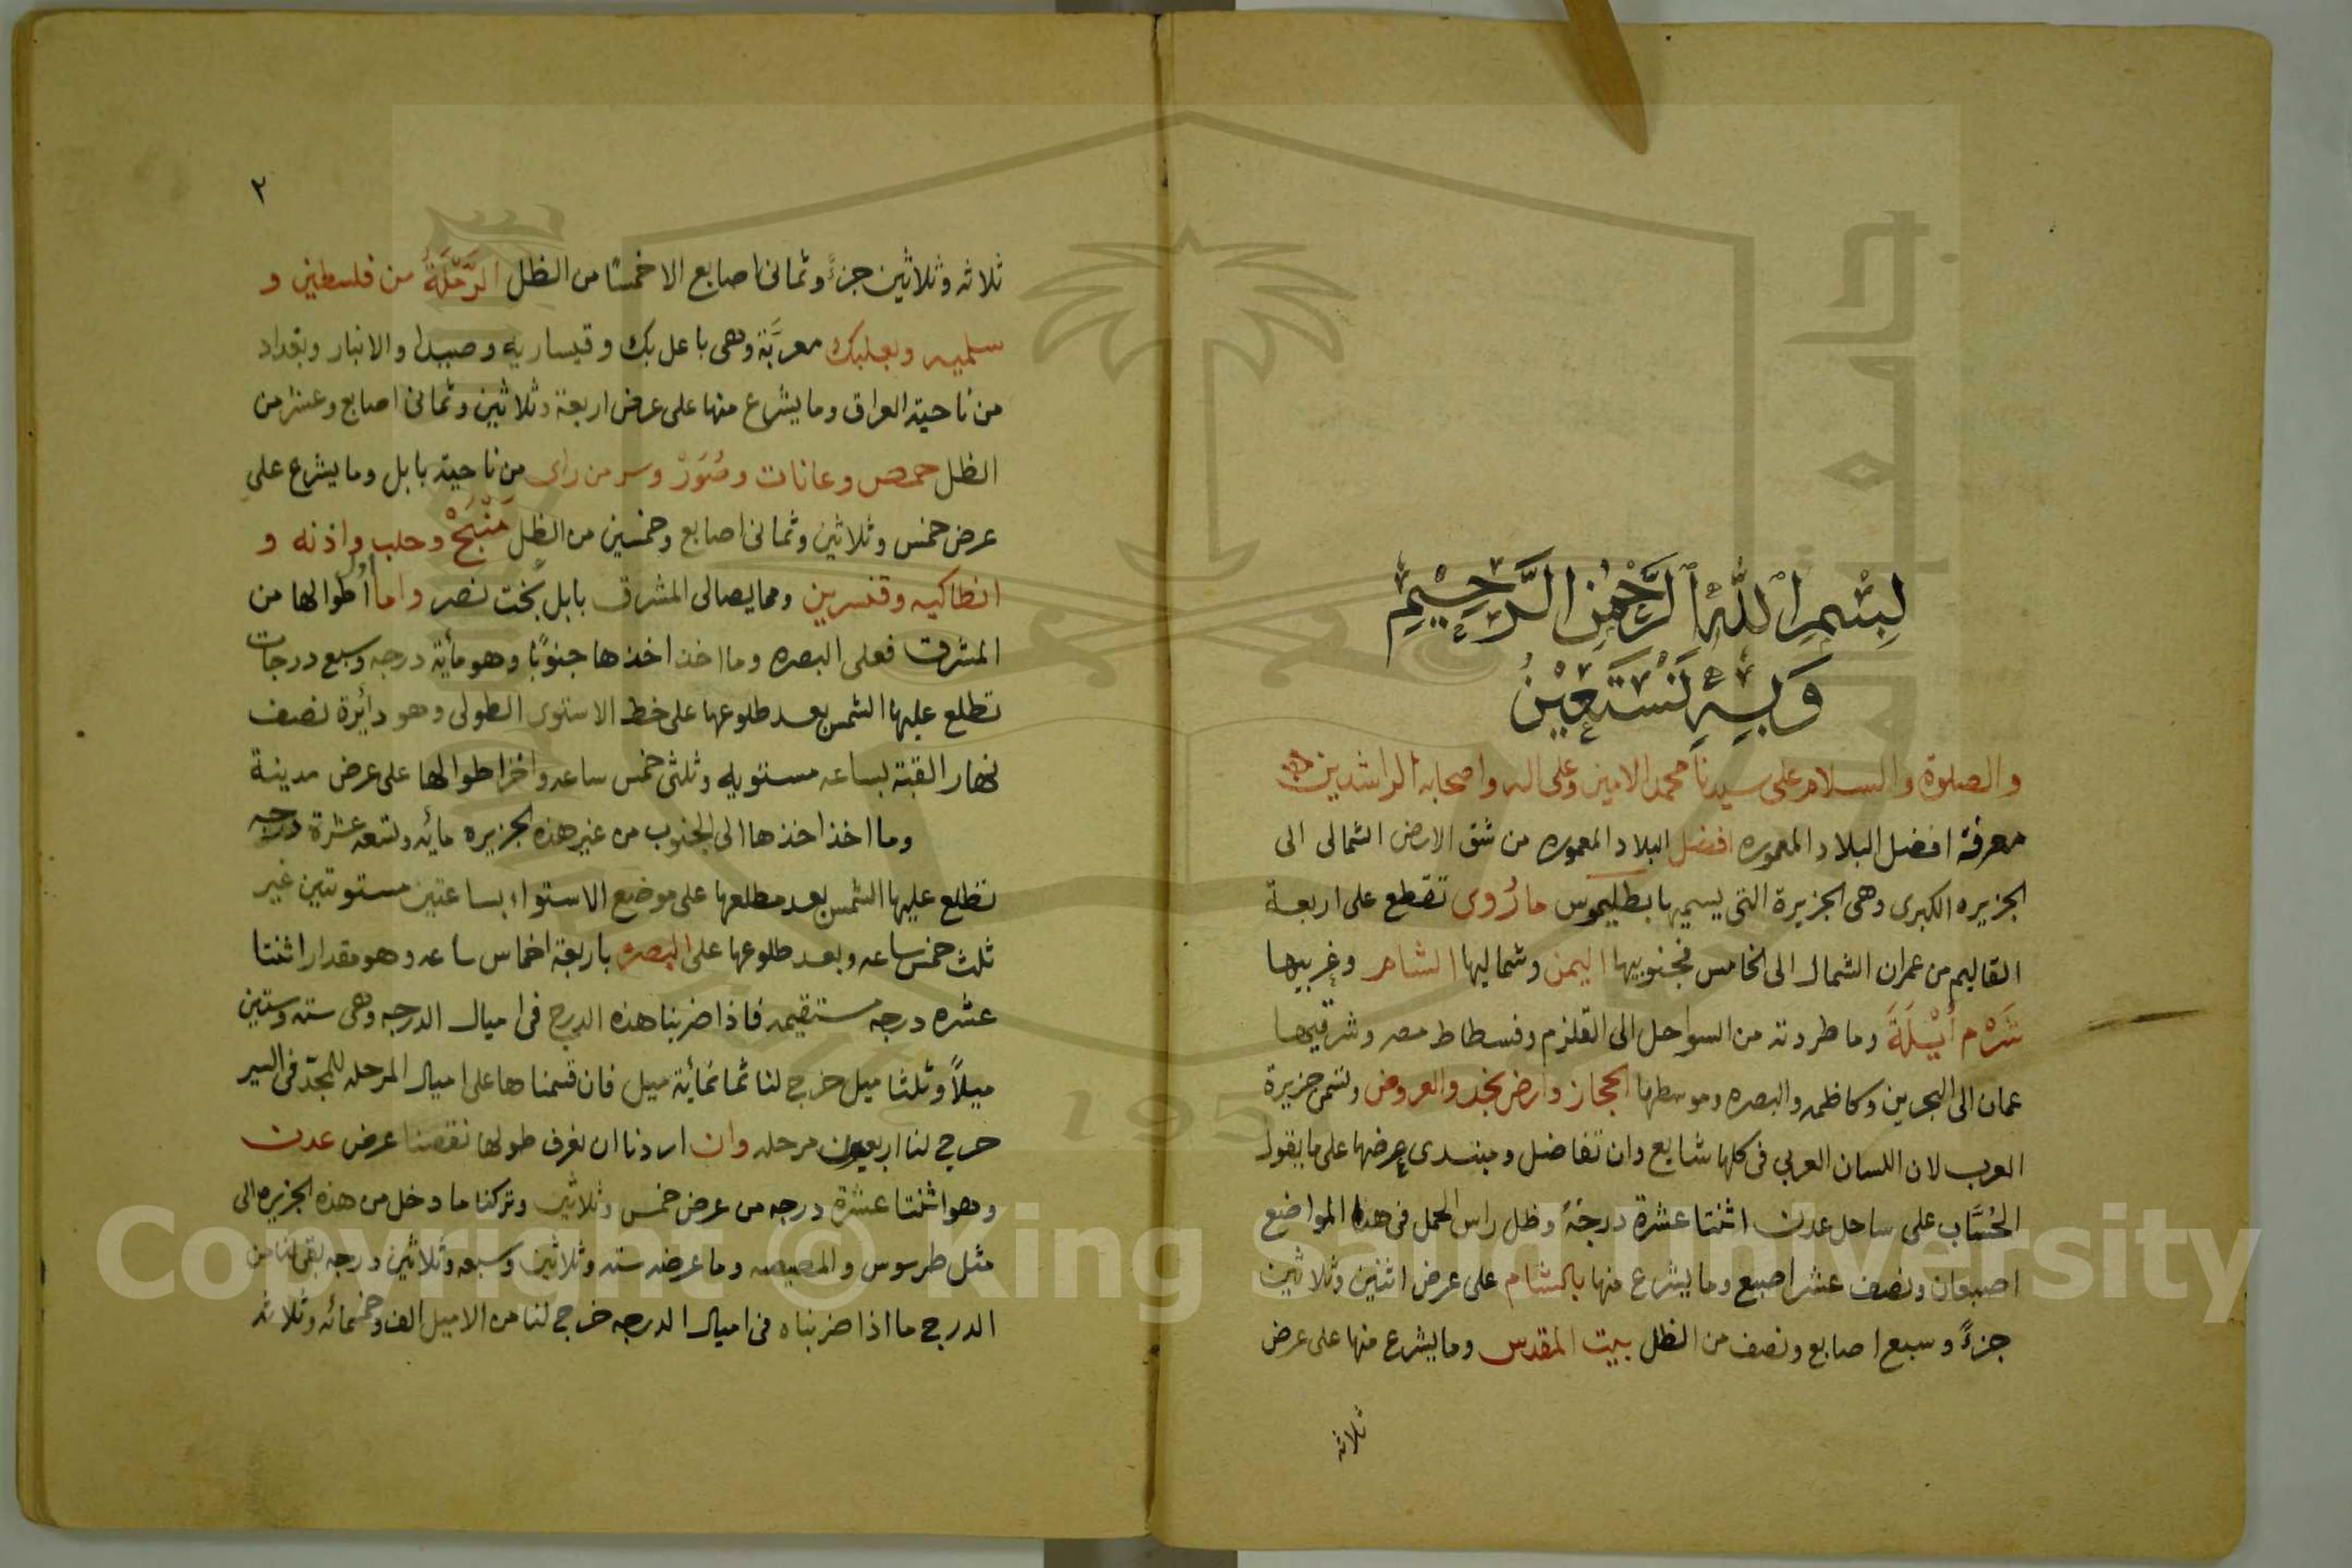 بِسْمِ اللّٰهِ الرَّحْمٰنِ الرَّحِيْمِ
وَبِهِ نَسْتَعِيْنُ
والصلوة والسلام على سيدنا محمد الامين وعلى اله واصحابه الراشدين
معرفة افضل البلاد المعموره افضل البلاد المعموره من شق الارض الشمالى الى
الجزيره الكبرى وهى الجزيرة التى يسميها بطليموس مارُوى تقطع على اربعة
القاليم من عمران الشمال الى الخامس فجنوبيها اليمن وشماليها الشام وغربيها
شَرْم أَيْلَةَ وما طردته من السواحل الى القلزم وفسطاط مصر وشرقيها
عمان الى البحرين وكاظمه والبصره وموسطها الحجاز وارض نجد والعروض وتسمى جزيرة
العرب لان اللسان العربي فى كلها شايع وان تفاضل ومبتدى عرضها على ما يقول
الحُسَّاب على ساحل عدن اثنتا عشرة درجةً وظل راس الحمل فى هذا المواضع
اصبعان ونصف عشر اصبع وما يشرع منها بالشام على عرض اثنين وثلاثين
جزءً وسبع اصابع ونصف من الظل بيت المقدس وما يشرع منها على عرض
ثلاثه
٢
ثلاثه وثلاثين جزءً وثمانى اصابع الا خمسًا من الظل الرَّمْلَةُ من فلسطين و
سلميه وبعلبك معربَّة وهى باعل بك وقيساريه وصيدا والانبار وبغداد
من ناحية العراق وما يشرع منها على عرض اربعة وثلاثين وثمانى اصابع وعشر من
الظل حمص وعانات وصُوَرْ وسر من راى من ناحية بابل وما يشرع على
عرض خمس وثلاثين وثمانى اصابع وخمسين من الظل مَنْبَجْ وحلب واذنه و
انطاكيه وقنسرين ومما يصالى المشرق بابل بخت نصر واما أطوالها من
المشرق فعلى البصره وما اخذ اخذها جنوبًا وهو مأية درجه وسبع درجات
تطلع عليها الشمس بعد طلوعها على خط الاستوى الطولى وهو دائرة نصف
نهار القبة بساعه مستويه وثلثى خمس ساعه واخر اطوالها على عرض مدينة
وما اخذ اخذها الى الجنوب من غير هذه الجزيره مايه وتسعه عشرة درجه
تطلع عليها الشمس بعد مطلعها على موضع الاستواء بساعتين مستويتين غير
ثلث خمس ساعه وبعد طلوعها على البصره باربعة اخماس ساعه وهو مقدار اثنتا
عشره درجه مستقيمه فاذا ضربنا هذه الدرج فى اميال الدرجه وهى سته وستين
ميلاً وثلثا ميل خرج لنا ثمانمائية ميل فان قسمنا ها على اميال المرحله للمجدّ فى السير
خرج لنا اربعون مرحله وان اردنا ان نعرف طولها نقصنا عرض عدن
وهو اثنتا عشرة درجه من عرض خمس وثلاثين وتركنا ما دخل من هذه الجزيره الى
مثل طرسوس والمصيصه وما عرضه سته وثلاثين وسبعه وثلاثين درجه بقى لنا من
الدرج ما اذا ضربناه فى اميال الدرجه خرج لنا من الاميل الف وخمسمائه وثلاثه
Copyright © King Saud University
1957